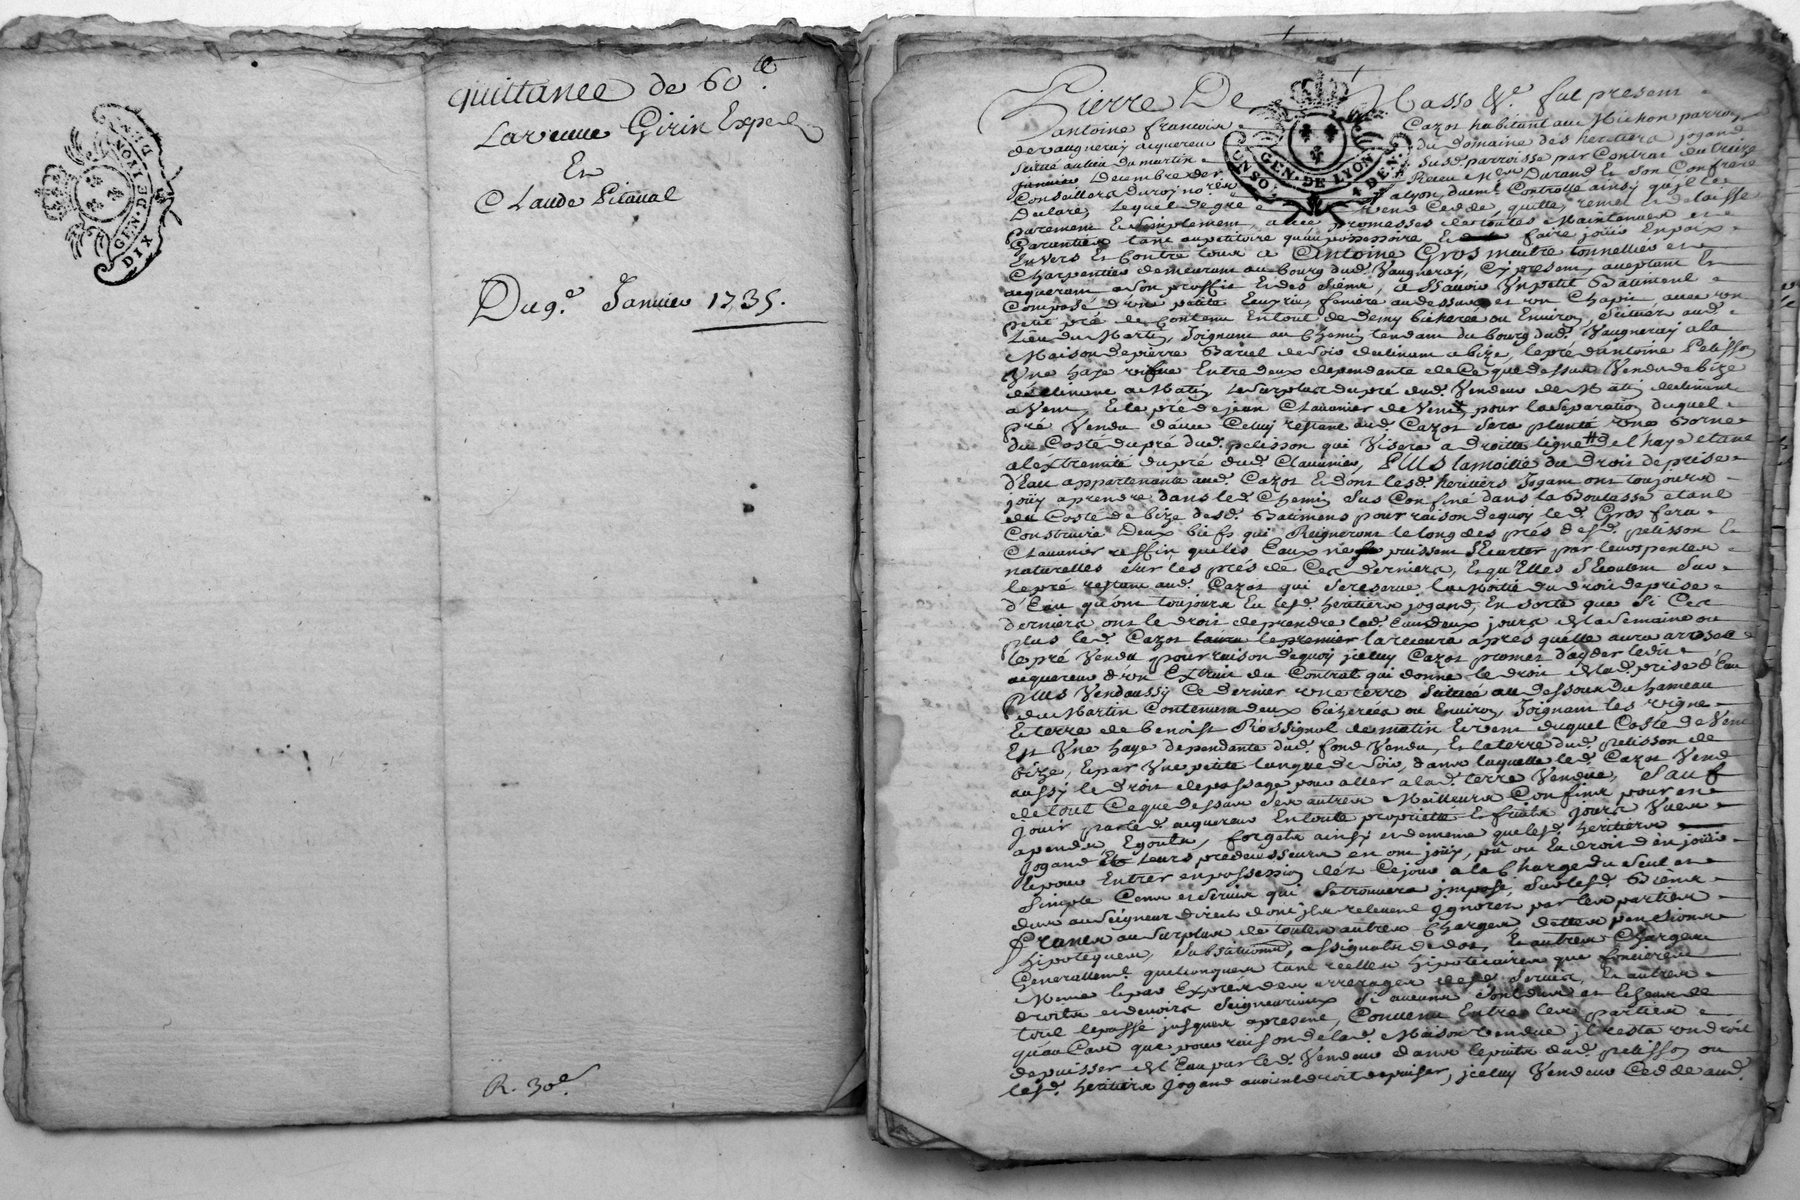 quittance de 60 ₶.
La veuve Girin Exped
En
Claude Pitaval
Du 9e. Janvier 1735.
R. 30e
DIX DEN
GEN·DE LYON
Pierre De Masso &c. fut present
antoine francois Cazot habitant au Michon parroisse
de vaugneray acquereur du domaine des heritiers jogand
scitué au lieu du martin susd. parroisse par Contrat du treize
Decembre der Receu Mes Durand & son Confrere
Conseillers du roy nores a lyon, duemt Controllé ainsy qu'il le
declare, Lequel de gré vend Cedde, quitte, remet et delaisse
purement & simplement, avec promesses de toutes Maintenues et
Garanties tant au petitoire qu'au possessoire & faire joüir En paix
Envers Et Contre tous a Antoine Gros maitre tonnellier et
Charpentier demeurant au bourg dud. Vaugneray, Cy present, acceptant Et
acquerant a son proffit Et des siens, a sçavoir Un petit Batiment
Composé d'une petite Ecurie, feniere au dessus et un Chapit, avec un
petit pré de Contenu En tout de demy bicherée ou Environ, Scituez aud.
Lieu du Martin, Joignant au Chemin tendant du bourg dud. Vaugneray a la
Maison de pierre Bariel de soir declinant a bize, le pré d'antoine Pelisson
Une haye vifve Entre deux dependante de Ce que dessus Vendu de bize
declinant a Matin, Le surplus du pré dud. Vendeur de Matin declinant
a Vent, Et le pré de jean Clavunier de Vent, pour la separation duquel
pré Vendu d'avec Celuy restant aud. Cazot sera planté une Borne
du Costé du pré dud. pelisson qui Visera a droitte ligne del haye etant
a l'extremité du pré dud. Clavunier, PLUS la moitié du Droit de prise
d'Eau appartenante aud. Cazot Et dont lesd. heritiers Jogant ont toujours
joüy a prendre dans led. Chemin sus Confiné dans la Boutasse etant
du Costé de bize desd. Batimens pour raison de quoy led. Gros fera
Construire Deux biefs qui Reigneront le long des prés desd. pelisson Et
Clavunier affin que les Eaux ne puissent s'Ecarter par leurs pentes
naturelles sur les prés de Ces derniers, Et qu'Elles s'Ecoutent sur
le pré restant aud. Cazot qui se reserve la Moitié du droit de prise
d'Eau qu'ont toujours Eu lesd. heritiers jogand, En sorte que si Ces
derniers ont le droit de prendre lad. Eau deux jours de la semaine ou
plus led. Cazot laura le premier la recevra aprés qu'elle aura arrosé
le pré Vendu pour raison de quoy jceluy Cazot promet d'ayder ledit
acquereur d'un Extrait du Contrat qui donne le droit de lad. prise d'Eau
PLUS Vend aussy Ce Dernier une terre Scituée au dessous du hameau
du Martin Contenant deux bicherées ou Environ, Joignant les vigne
Et terre de benoist Rossignol de matin Et vent duquel Costé de Vent
Est Une haye dependante dud. fond Vendu, Et la terre dud. pelisson de
bize, Et par Une petite langue de Soir, dans laquelle led. Cazot Vend
aussy le droit de passage pour aller a lad. terre Vendue, Sauf
de tout Ce que dessus ses autres Meilleurs Confins pour en
jouir par led. acquereur En toute proprieté Et fruits jours Vues
apends Egouts, forgets ainsy et de meme que lesd. heritiers
jogand Et Leurs predecesseurs en ont joüy, pû ou Eu droit d'en joüir
Et pour Entrer en possession dez Ce jour a la Charge du seul et
simple Cens et servis qui se trouvera jmposé sur lesd. Biens
dus au Seigneur direct dont jls relevent jgnorez par les parties
Francs au surplus de toutes autres Charges dettes pensions
hipoteques, substitutions, assignats de dot, Et autres Charges
Generallemt. quelconques tant reelles hipotecaires que foncieres
Meme Et par Exprés des arrerages desd. Servis, Et autres
droits et devoirs Seigneuriaux si aucuns sont dus et Echeus de
tout le passé jusques a present, Convenu Entre les parties
qu'au Cas que pour raison de la d. Maison vendue jl resta un droit
de puiser de l'Eau par led. Vendeur dans le puits dud. pelisson ou
lesd. heritiers jogand avoient droit de puiser, jceluy Vendeur Cedde aud.
GEN·DE LYON
UN SOL 4 DEN.